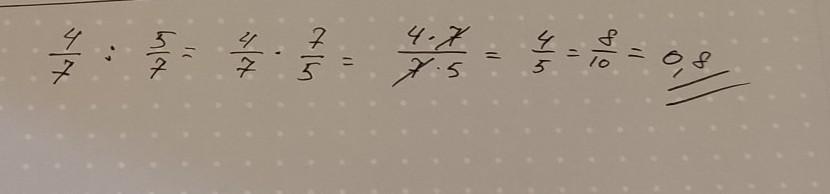 4/7 : 5/7 = 4/7 · 7/5 = 4·7/7·5 = 4/5 = 8/10 = 0,8